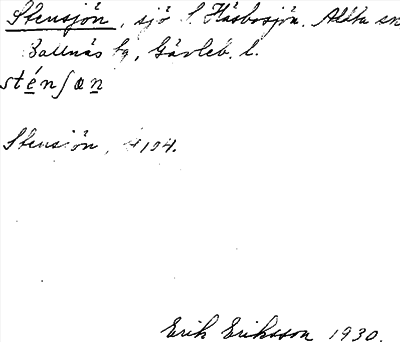 Stensjön, sjö S. Häsbosjön. Alfta sn
Bollnäs fg, Gävleb. l.
sténʃøn
Stensjön, 4104.
Erik Eriksson 1930.